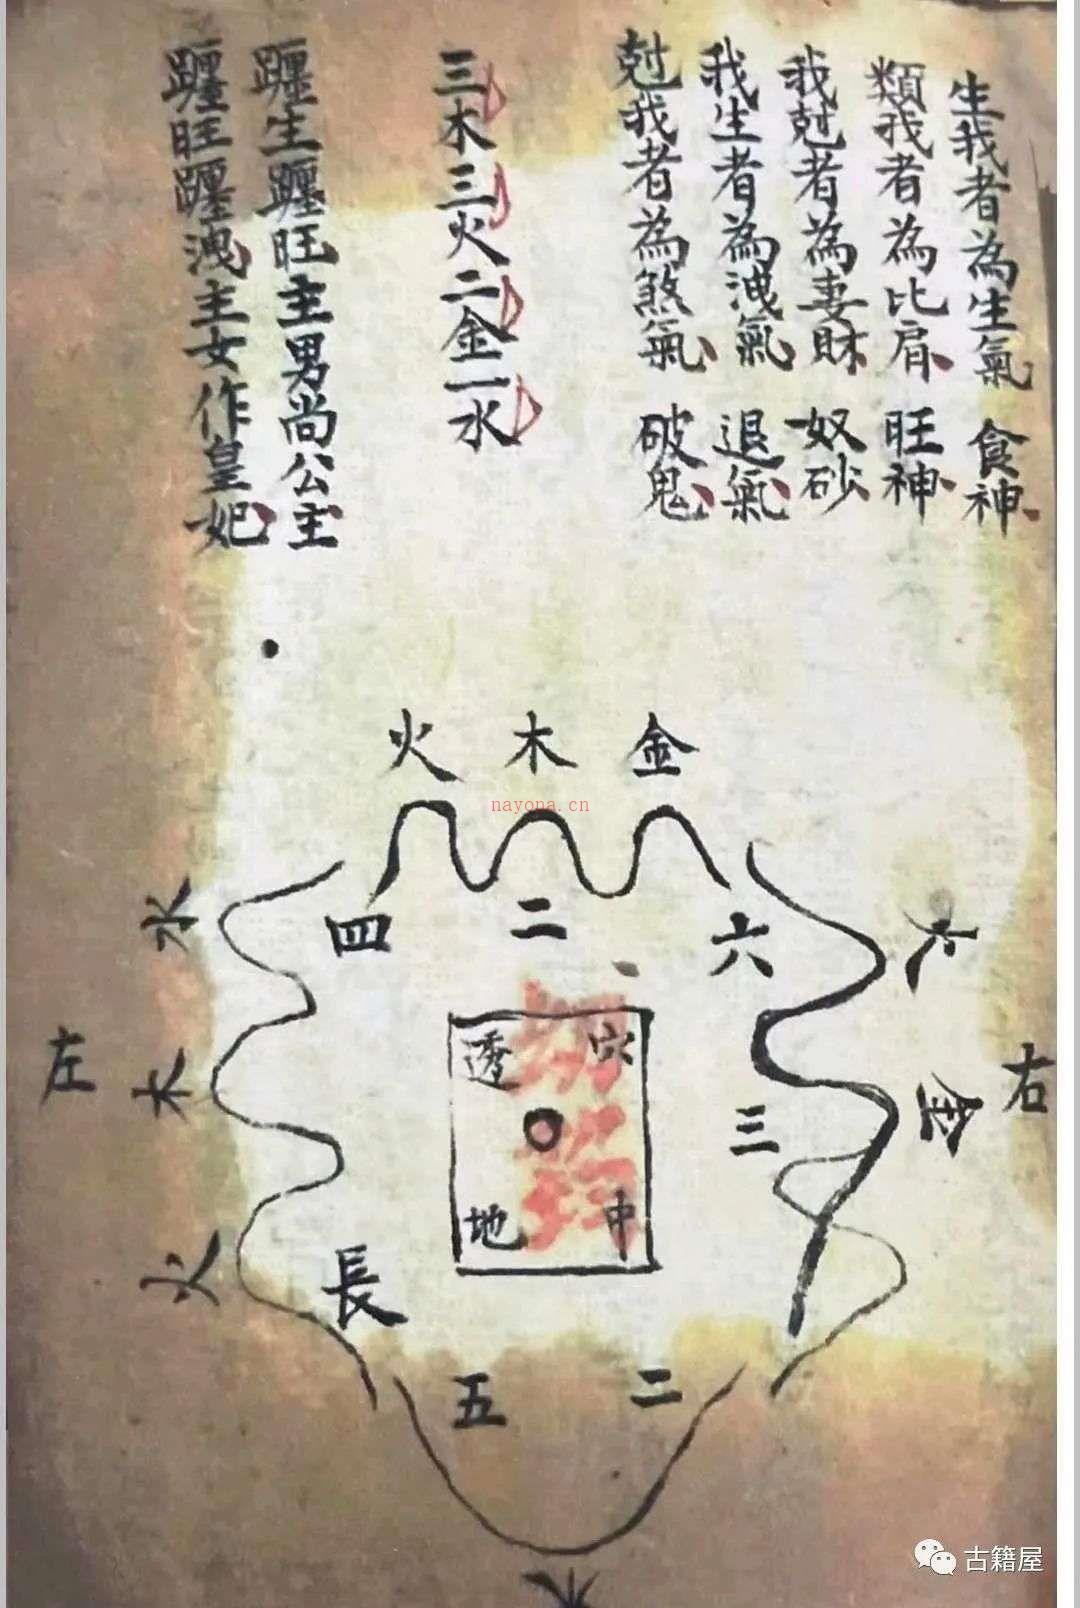 生我者為生氣 食神
類我者為比肩 旺神
我尅者為妻財 奴砂
我生者為洩氣 退氣
尅我者為煞氣 破鬼
三木三火二金一水
躔生躔旺主男尚公主
躔旺躔洩主女作皇妃
火 木 金
nayona.cn
四 二 六
水
木
火
左
火
金
右
三
透 穴
地 中
長
五 二
水
古籍屋